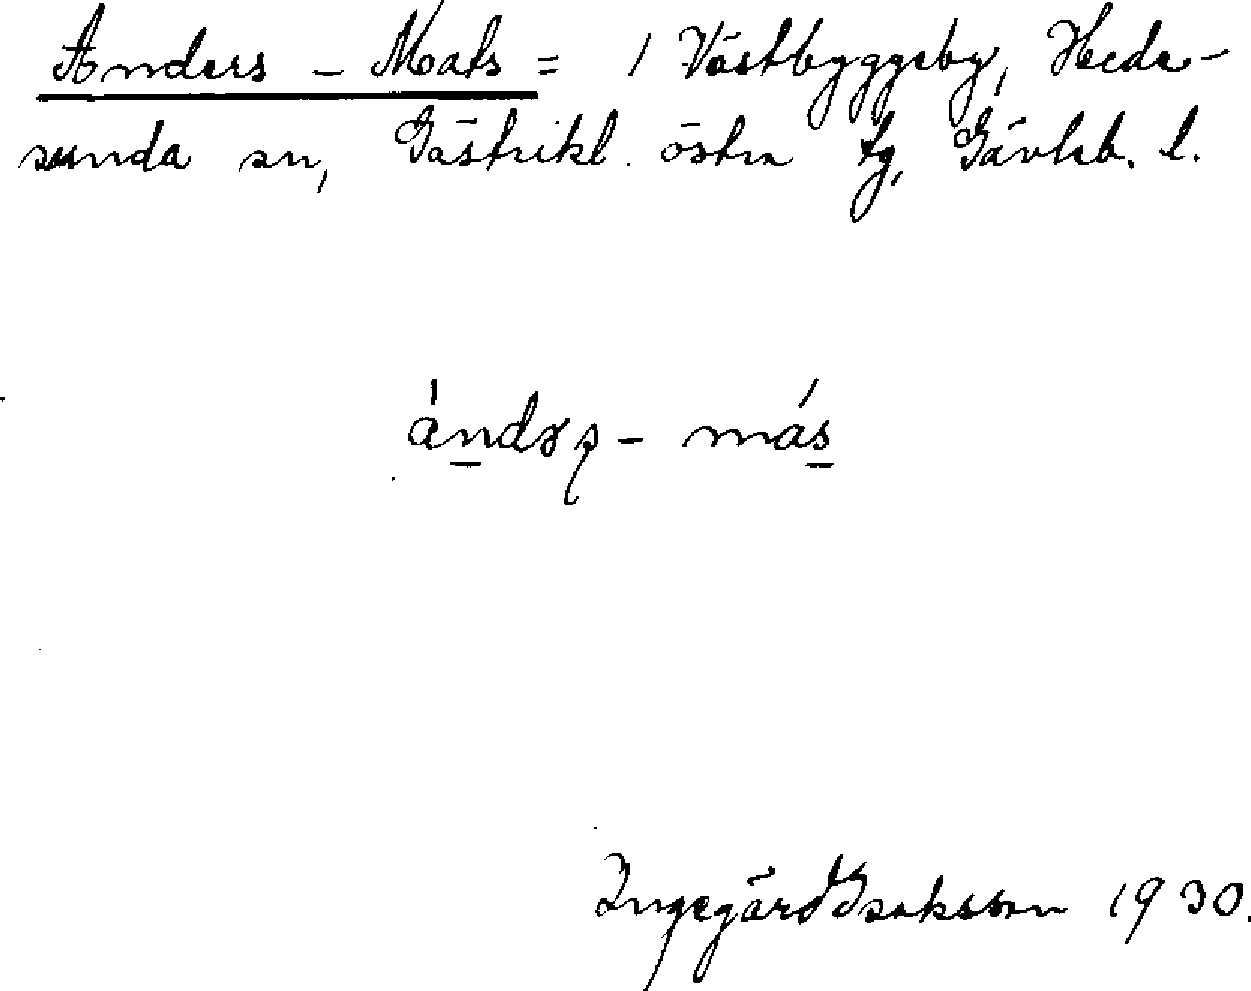 Anders - Mats = / Västbyggeby, Hede-
sunda sn, Gästrikl. östra tg, Gävleb. l.
ándəʂ - más
Ingegärd Isaksson 1930.